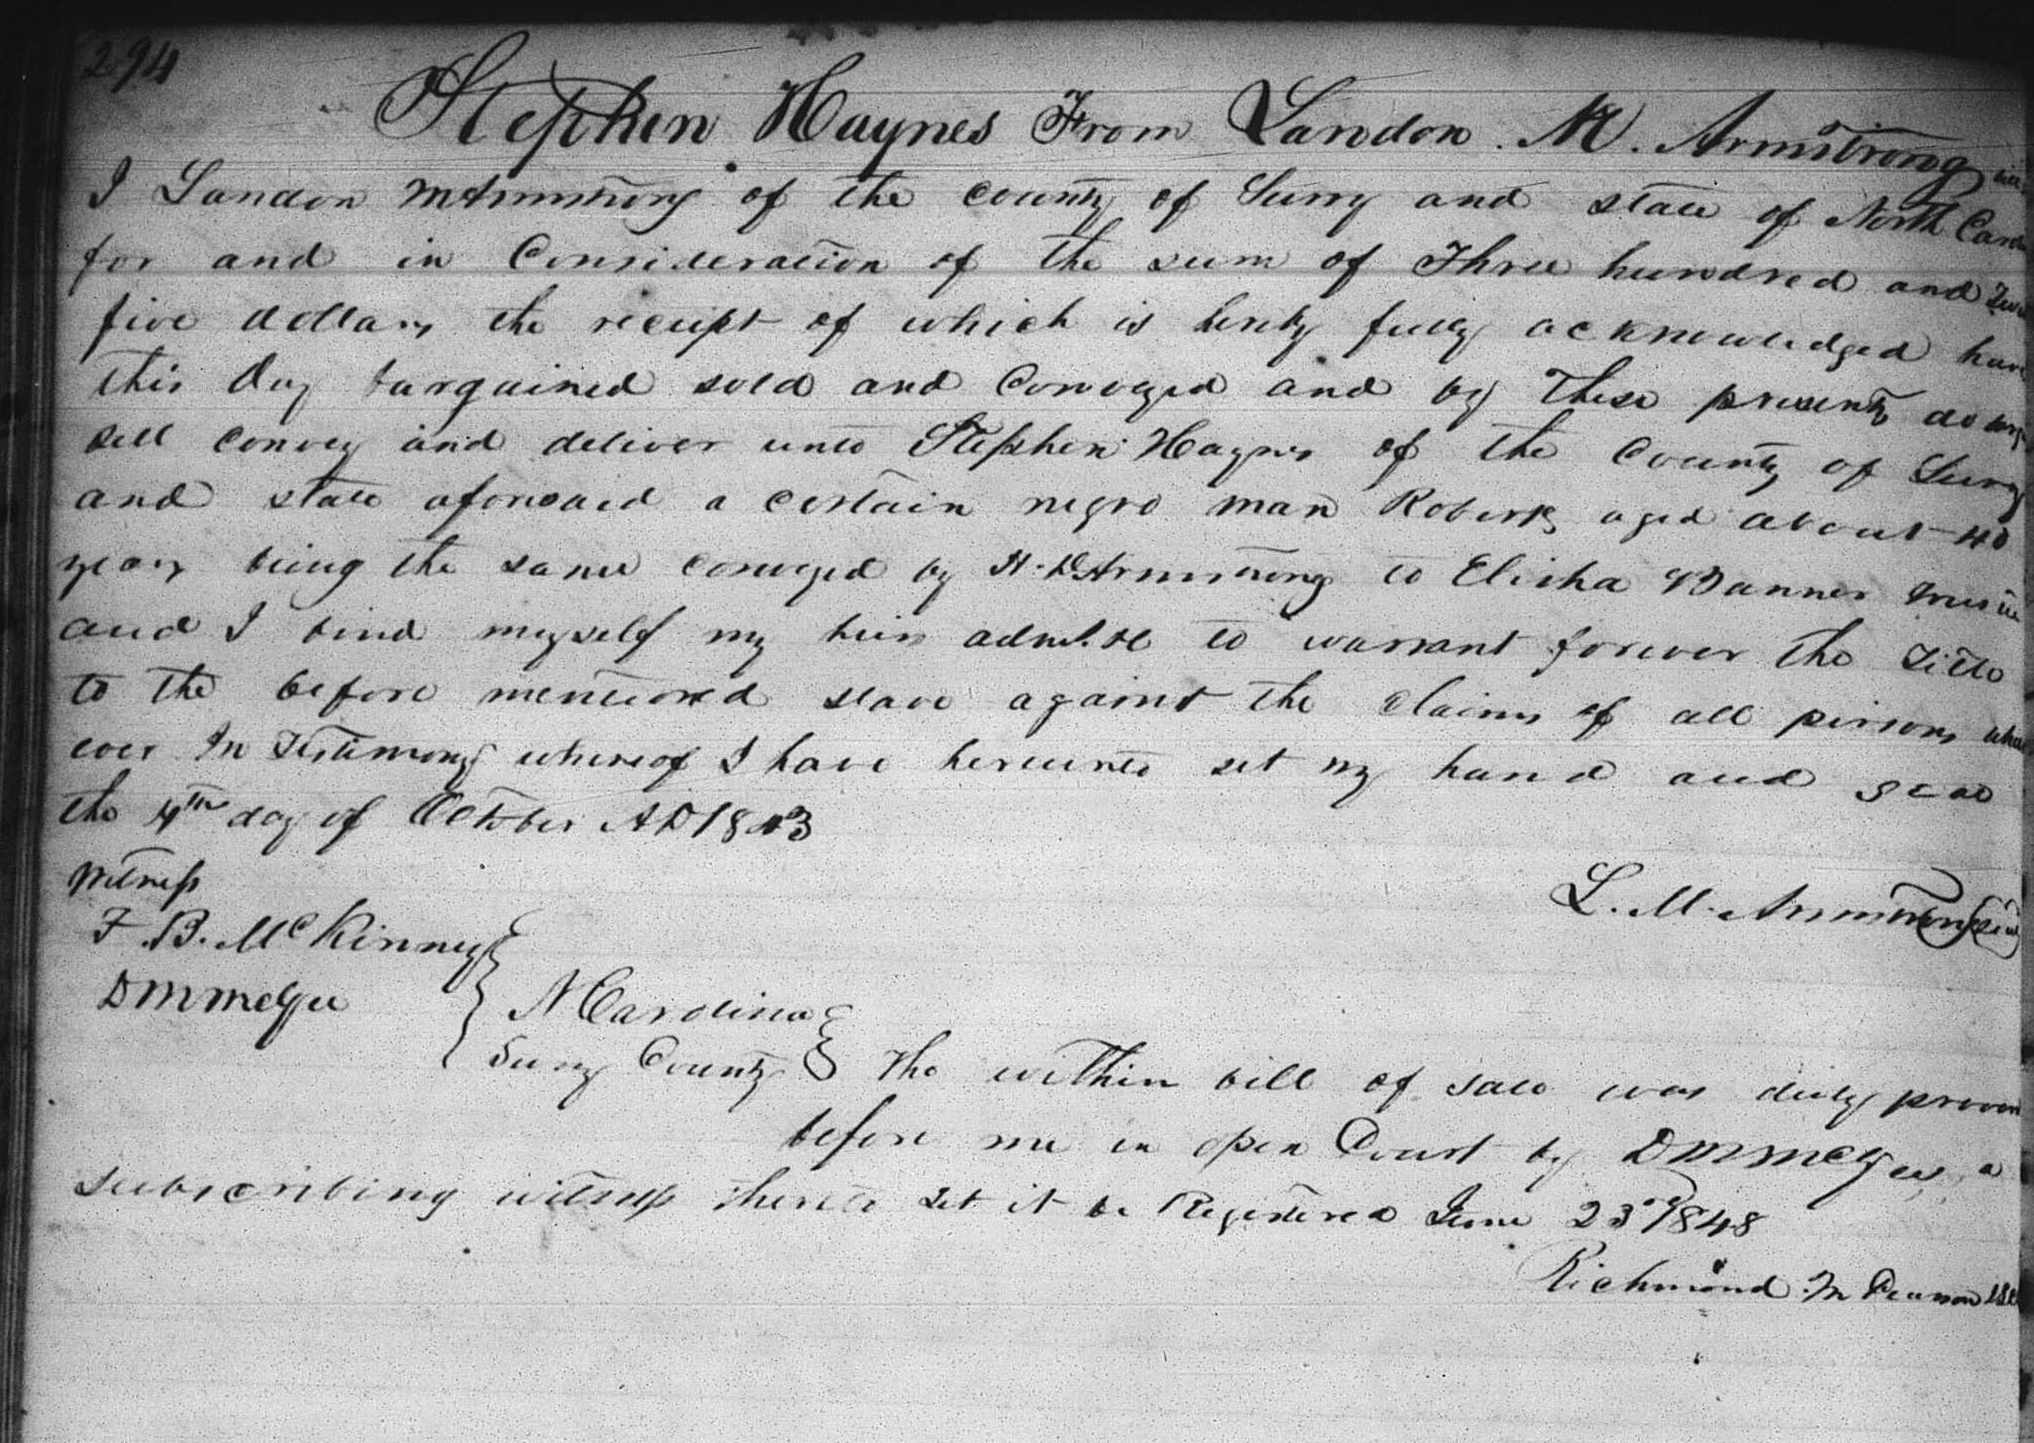 294
Stephen Haynes From Landon M. Armstrong
I Landon M Armstrong of the County of Surry and State of North
for and in Consideration of the sum of Three hundred and
five dollars the receipt of which is hereby fully acknowledged have
this day bargained sold and Conveyed and by These presents do
sell convey and deliver unto Stephen Haynes of the County of Surry
and state aforesaid a certain negro man Robert aged about 40
years being the same conveyed by H. D. Armstrong to Elisha Banner Trustee
and I bind myself my heirs to warrant forever the Title
to the before mentioned slave against the claims of all persons
ever In Testimony whereof I have hereunto set my hand and seal
the 4th day of October AD 1843
Witness
F. B. McKinney
L. M. Armstrong (Seal)
D M McGee
N Carolina
Surry County
The within bill of sale was duly proven
before me in open Court by D M McGee a
subscribing witness thereto Let it be Registered June 23rd 1848
Richmond M Pearson